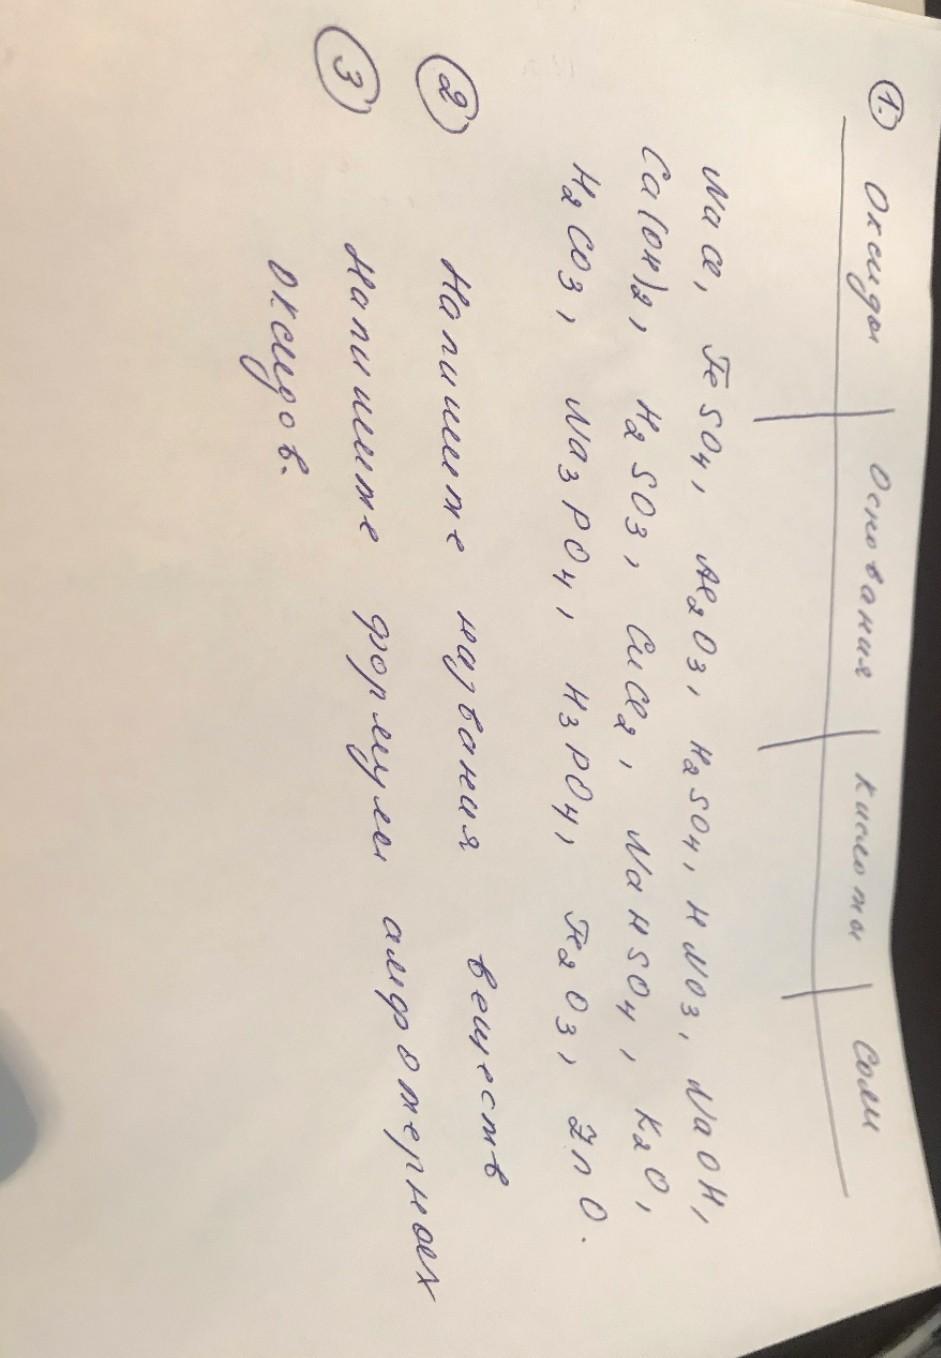 1. Оксиды | Основания | Кислоты | Соли
NaCl, FeSO4, Al2O3, H2SO4, HNO3, NaOH,
Ca(OH)2, H2SO3, CuCl2, NaHSO4, K2O,
H2CO3, Na3PO4, H3PO4, Fe2O3, ZnO.
2 Напишите названия веществ
3 Напишите формулы амфотерных
оксидов.